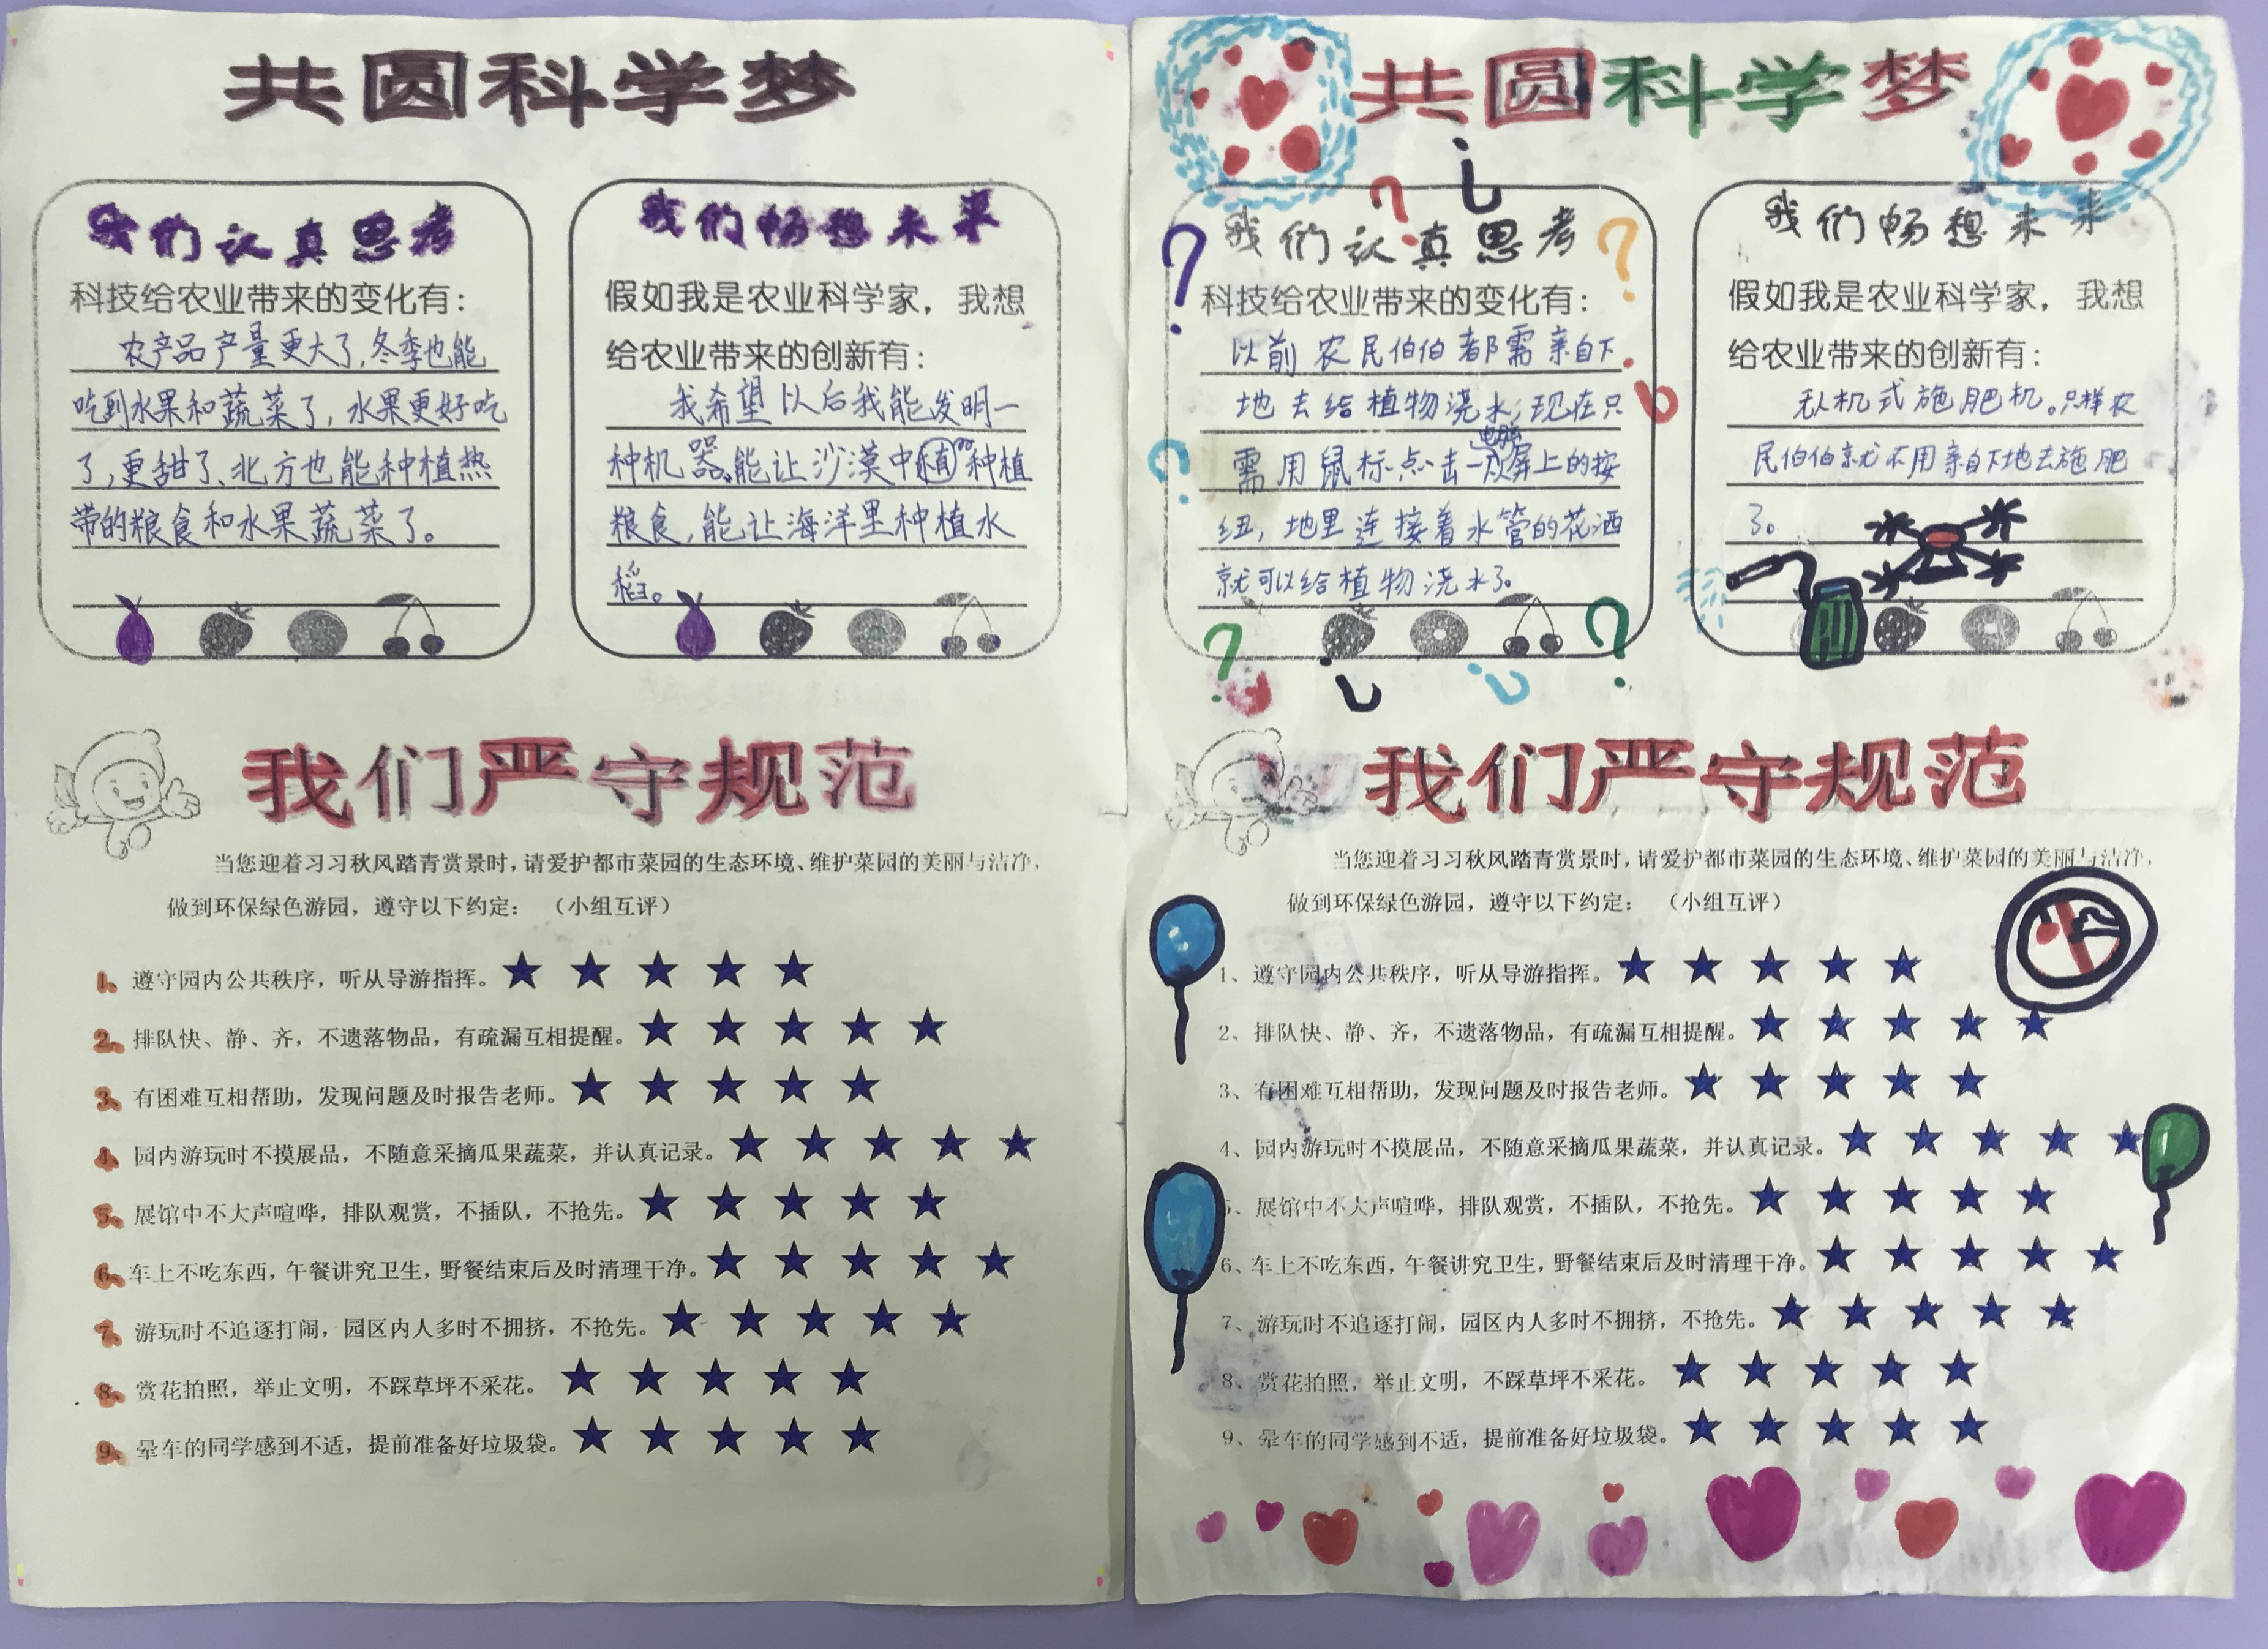 共圆科学梦
我们认真思考
科技给农业带来的变化有：
农产品产量更大了,冬季也能
吃到水果和蔬菜了,水果更好吃
了,更甜了、北方也能种植热
带的粮食和水果蔬菜了。
我们畅想未来
假如我是农业科学家，我想
给农业带来的创新有：
我希望以后我能发明一
种机器,能让沙漠中植种植
粮食,能让海洋里种植水
稻。
我们严守规范
当您迎着习习秋风踏青赏景时，请爱护都市菜园的生态环境、维护菜园的美丽与洁净，
做到环保绿色游园，遵守以下约定：（小组互评）
1、遵守园内公共秩序，听从导游指挥。★ ★ ★ ★ ★
2、排队快、静、齐，不遗落物品，有疏漏互相提醒。★ ★ ★ ★ ★
3、有困难互相帮助，发现问题及时报告老师。★ ★ ★ ★ ★
4、园内游玩时不摸展品，不随意采摘瓜果蔬菜，并认真记录。★ ★ ★ ★ ★
5、展馆中不大声喧哗，排队观赏，不插队，不抢先。★ ★ ★ ★ ★
6、车上不吃东西，午餐讲究卫生，野餐结束后及时清理干净。★ ★ ★ ★ ★
7、游玩时不追逐打闹，园区内人多时不拥挤，不抢先。★ ★ ★ ★ ★
8、赏花拍照，举止文明，不踩草坪不采花。★ ★ ★ ★ ★
9、晕车的同学感到不适，提前准备好垃圾袋。★ ★ ★ ★ ★
共圆科学梦
我们认真思考
科技给农业带来的变化有：
以前农民伯伯都需亲自下
地去给植物浇水;现在只
需用鼠标点击一次电脑屏上的按
纽,地里连接着水管的花洒
就可以给植物浇水了。
我们畅想未来
假如我是农业科学家，我想
给农业带来的创新有：
无人机式施肥机。只样农
民伯伯就不用亲自下地去施肥
了。
我们严守规范
当您迎着习习秋风踏青赏景时，请爱护都市菜园的生态环境、维护菜园的美丽与洁净，
做到环保绿色游园，遵守以下约定：（小组互评）
1、遵守园内公共秩序，听从导游指挥。★ ★ ★ ★ ★
2、排队快、静、齐，不遗落物品，有疏漏互相提醒。★ ★ ★ ★ ★
3、有困难互相帮助，发现问题及时报告老师。★ ★ ★ ★ ★
4、园内游玩时不摸展品，不随意采摘瓜果蔬菜，并认真记录。★ ★ ★ ★ ★
、展馆中不大声喧哗，排队观赏，不插队，不抢先。★ ★ ★ ★ ★
6、车上不吃东西，午餐讲究卫生，野餐结束后及时清理干净。★ ★ ★ ★ ★
7、游玩时不追逐打闹，园区内人多时不拥挤，不抢先。★ ★ ★ ★ ★
8、赏花拍照，举止文明，不踩草坪不采花。★ ★ ★ ★ ★
9、晕车的同学感到不适，提前准备好垃圾袋。★ ★ ★ ★ ★